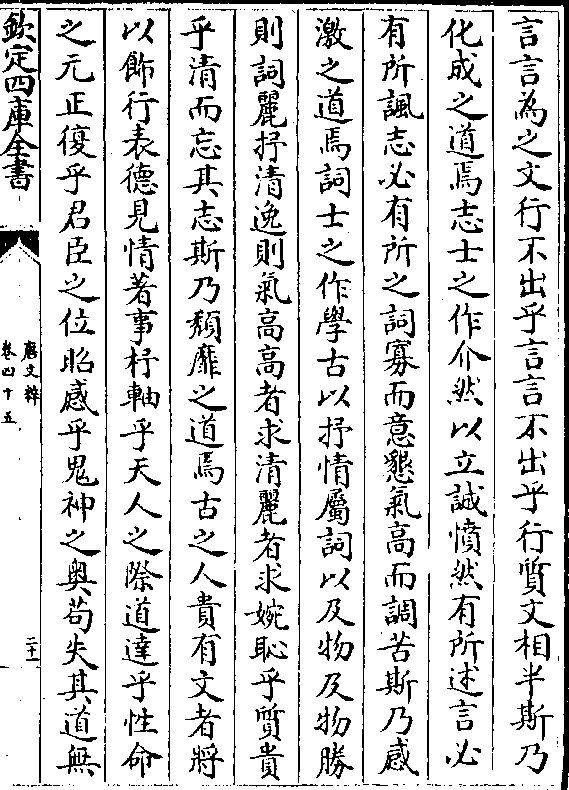 言言為之文行不出乎言言不出乎行質文相半斯乃
化成之道焉志士之作介然以立誠憤然有所述言必
有所諷志必有所之詞寡而意懇氣高而調苦斯乃感
激之道焉詞士之作學古以抒情屬詞以及物及物勝
則詞麗抒清逸則氣高高者求清麗者求婉恥乎質貴
乎清而忘其志斯乃頽靡之道焉古之人貴有文者將
以飾行表德見情著事杼軸乎天人之際道達乎性命
之元正復乎君臣之位昭感乎鬼神之奥苟失其道無
欽定四庫全書
唐文粹
卷四十五
二十